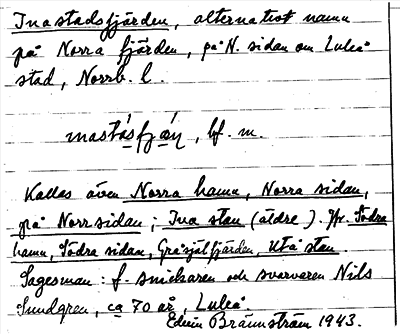 Inastadsfjärden, alternativt namn
på Norra fjärden, på N. sidan om Luleå
stad, Norrb. l.
bf. m.
Kallas även Norra hamn, Norra sidan,
på Norr sidan; Ina stan (äldre). Jfr. Södra
hamn, Södra sidan, Gråsjälfjärden, Utå stan.
Sagesman: f. snickaren och svarvaren Nils
Sundgren, ca 70 år, Luleå.
Edvin Brännström 1943.